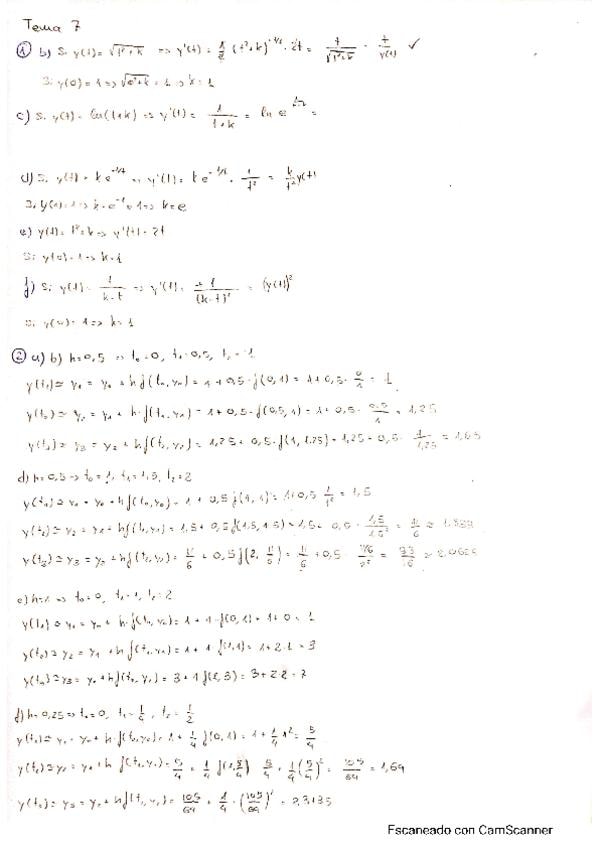 Tema 7
① b) Si y(t) = √(t²+k) ⇒ y'(t) = 1/2 (t²+k)^(-1/2) · 2t = t/√(t²+k) = t/y(t) ✓
Si y(0) = 1 ⇒ √(0²+k) = 1 ⇒ k = 1
c) Si y(t) = ln(t+k) ⇒ y'(t) = 1/(t+k) = ln e =
d) Si y(t) = k e^(-1/t) ⇒ y'(t) = k e^(-1/t) · 1/t² = y(t)
Si y(1) = 1 ⇒ k · e^(-1) = 1 ⇒ k = e
e) y(t) = t² + k ⇒ y'(t) = 2t
Si y(0) = 1 ⇒ k = 1
f) Si y(t) = 1/(k-t) ⇒ y'(t) = 1/(k-t)² = (y(t))²
Si y(0) = 1 ⇒ k = 1
② a) b) h = 0,5 ⇒ t₀ = 0, t₁ = 0,5, t₂ = 1
y(t₁) ≃ y₁ = y₀ + h f(t₀, y₀) = 1 + 0,5 · f(0,1) = 1 + 0,5 · 0/1 = 1
y(t₂) ≃ y₂ = y₁ + h · f(t₁, y₁) = 1 + 0,5 · f(0,5, 1) = 1 + 0,5 · 0,5/1 = 1,25
y(t₃) ≃ y₃ = y₂ + h f(t₂, y₂) = 1,25 + 0,5 · f(1, 1.25) = 1,25 + 0,5 · 1/1,25 = 1,65
d) h = 0,5 ⇒ t₀ = 1, t₁ = 1,5, t₂ = 2
y(t₁) ≃ y₁ = y₀ + h f(t₀, y₀) = 1 + 0,5 f(1, 1) = 1 + 0,5 1/1² = 1,5
y(t₂) ≃ y₂ = y₁ + h f(t₁, y₁) = 1,5 + 0,5 f(1.5, 1.5) = 1,5 + 0,5 · 1,5/1.5² = 11/6 ≃
y(t₃) ≃ y₃ = y₂ + h f(t₂, y₂) = 11/6 + 0,5 f(2, 11/6) = 11/6 + 0,5 · 11/6/2² = ≃
e) h = 1 ⇒ t₀ = 0, t₁ = 1, t₂ = 2
y(t₁) ≃ y₁ = y₀ + h · f(t₀, y₀) = 1 + 1 · f(0, 1) = 1 + 0 = 1
y(t₂) ≃ y₂ = y₁ + h f(t₁, y₁) = 1 + 1 · f(1, 1) = 1 + 2·1 = 3
y(t₃) ≃ y₃ = y₂ + h f(t₂, y₂) = 3 + 1 f(2, 3) = 3 + 2·2 = 7
f) h = 0,25 ⇒ t₀ = 0, t₁ = 1/4, t₂ = 1/2
y(t₁) ≃ y₁ = y₀ + h · f(t₀, y₀) = 1 + 1/4 f(0, 1) = 1 + 1/4 · 1² = 5/4
y(t₂) ≃ y₂ = y₁ + h f(t₁, y₁) = 5/4 + 1/4 f = 5/4 + 1/4 (5/4)² = 105/64 = 1,64
y(t₃) ≃ y₃ = y₂ + h f(t₂, y₂) = 105/64 + 1/4 · (105/64)² =
Escaneado con CamScanner